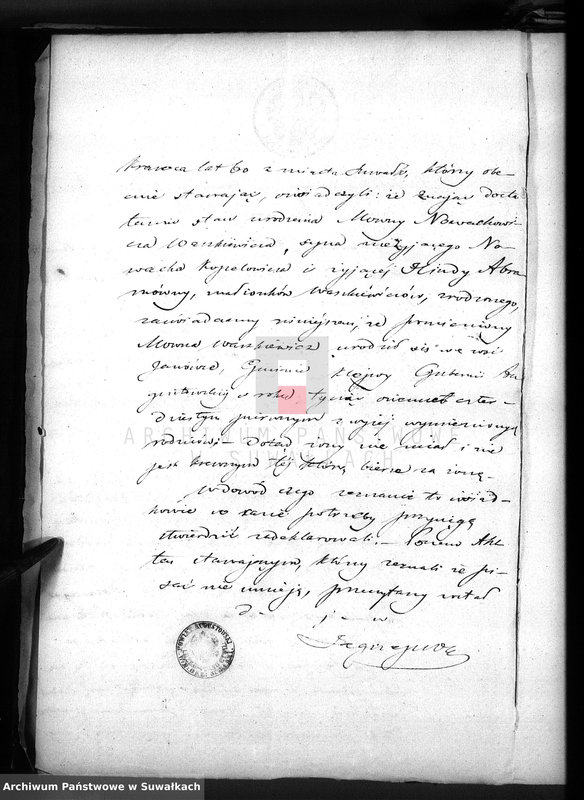 krawca lat 60 z miasta Suwałk, którzy obe-
cnie stawając, oświadczyli: że znając dokła-
tecznie stan urodzenia Mowny Nowachowi-
cza Waszkiewicza, syna nieżyjącego No-
wacha Kopelowicza i żyjącej Hindy Abra-
mówny, małżonków Waszkiewiczów, zrodzonego,
zaświadczamy niniejszem, że pomieniony
Mowna Waszkiewicz urodził się we wsi
Janówce, Gminie Gubernii Au-
gustowskiej w roku tysiąc ośmset czter-
dziestym pierwszym z wyżej wymienionych
rodziców; – Dotąd żony nie miał i nie
jest krewnym tej którą bierze za żonę.
Wdowód czego zeznanie to świad-
kowie w razie potrzeby przysięgą
stwierdzić zadeklarowali. – Poczem Akt
ten stawającym, którzy zeznali że pi-
sać nie umieją, przeczytany został
ARCHIWUM PAŃSTWOWE
W SUWAŁKACH
Archiwum Państwowe w Suwałkach